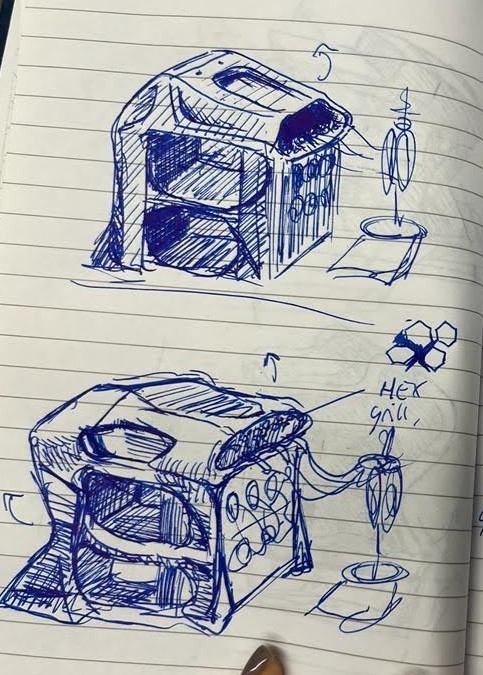 HEX
grill,